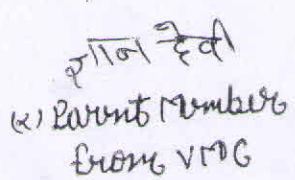 ज्ञान देवी
(२) Parent Member
from VMDC